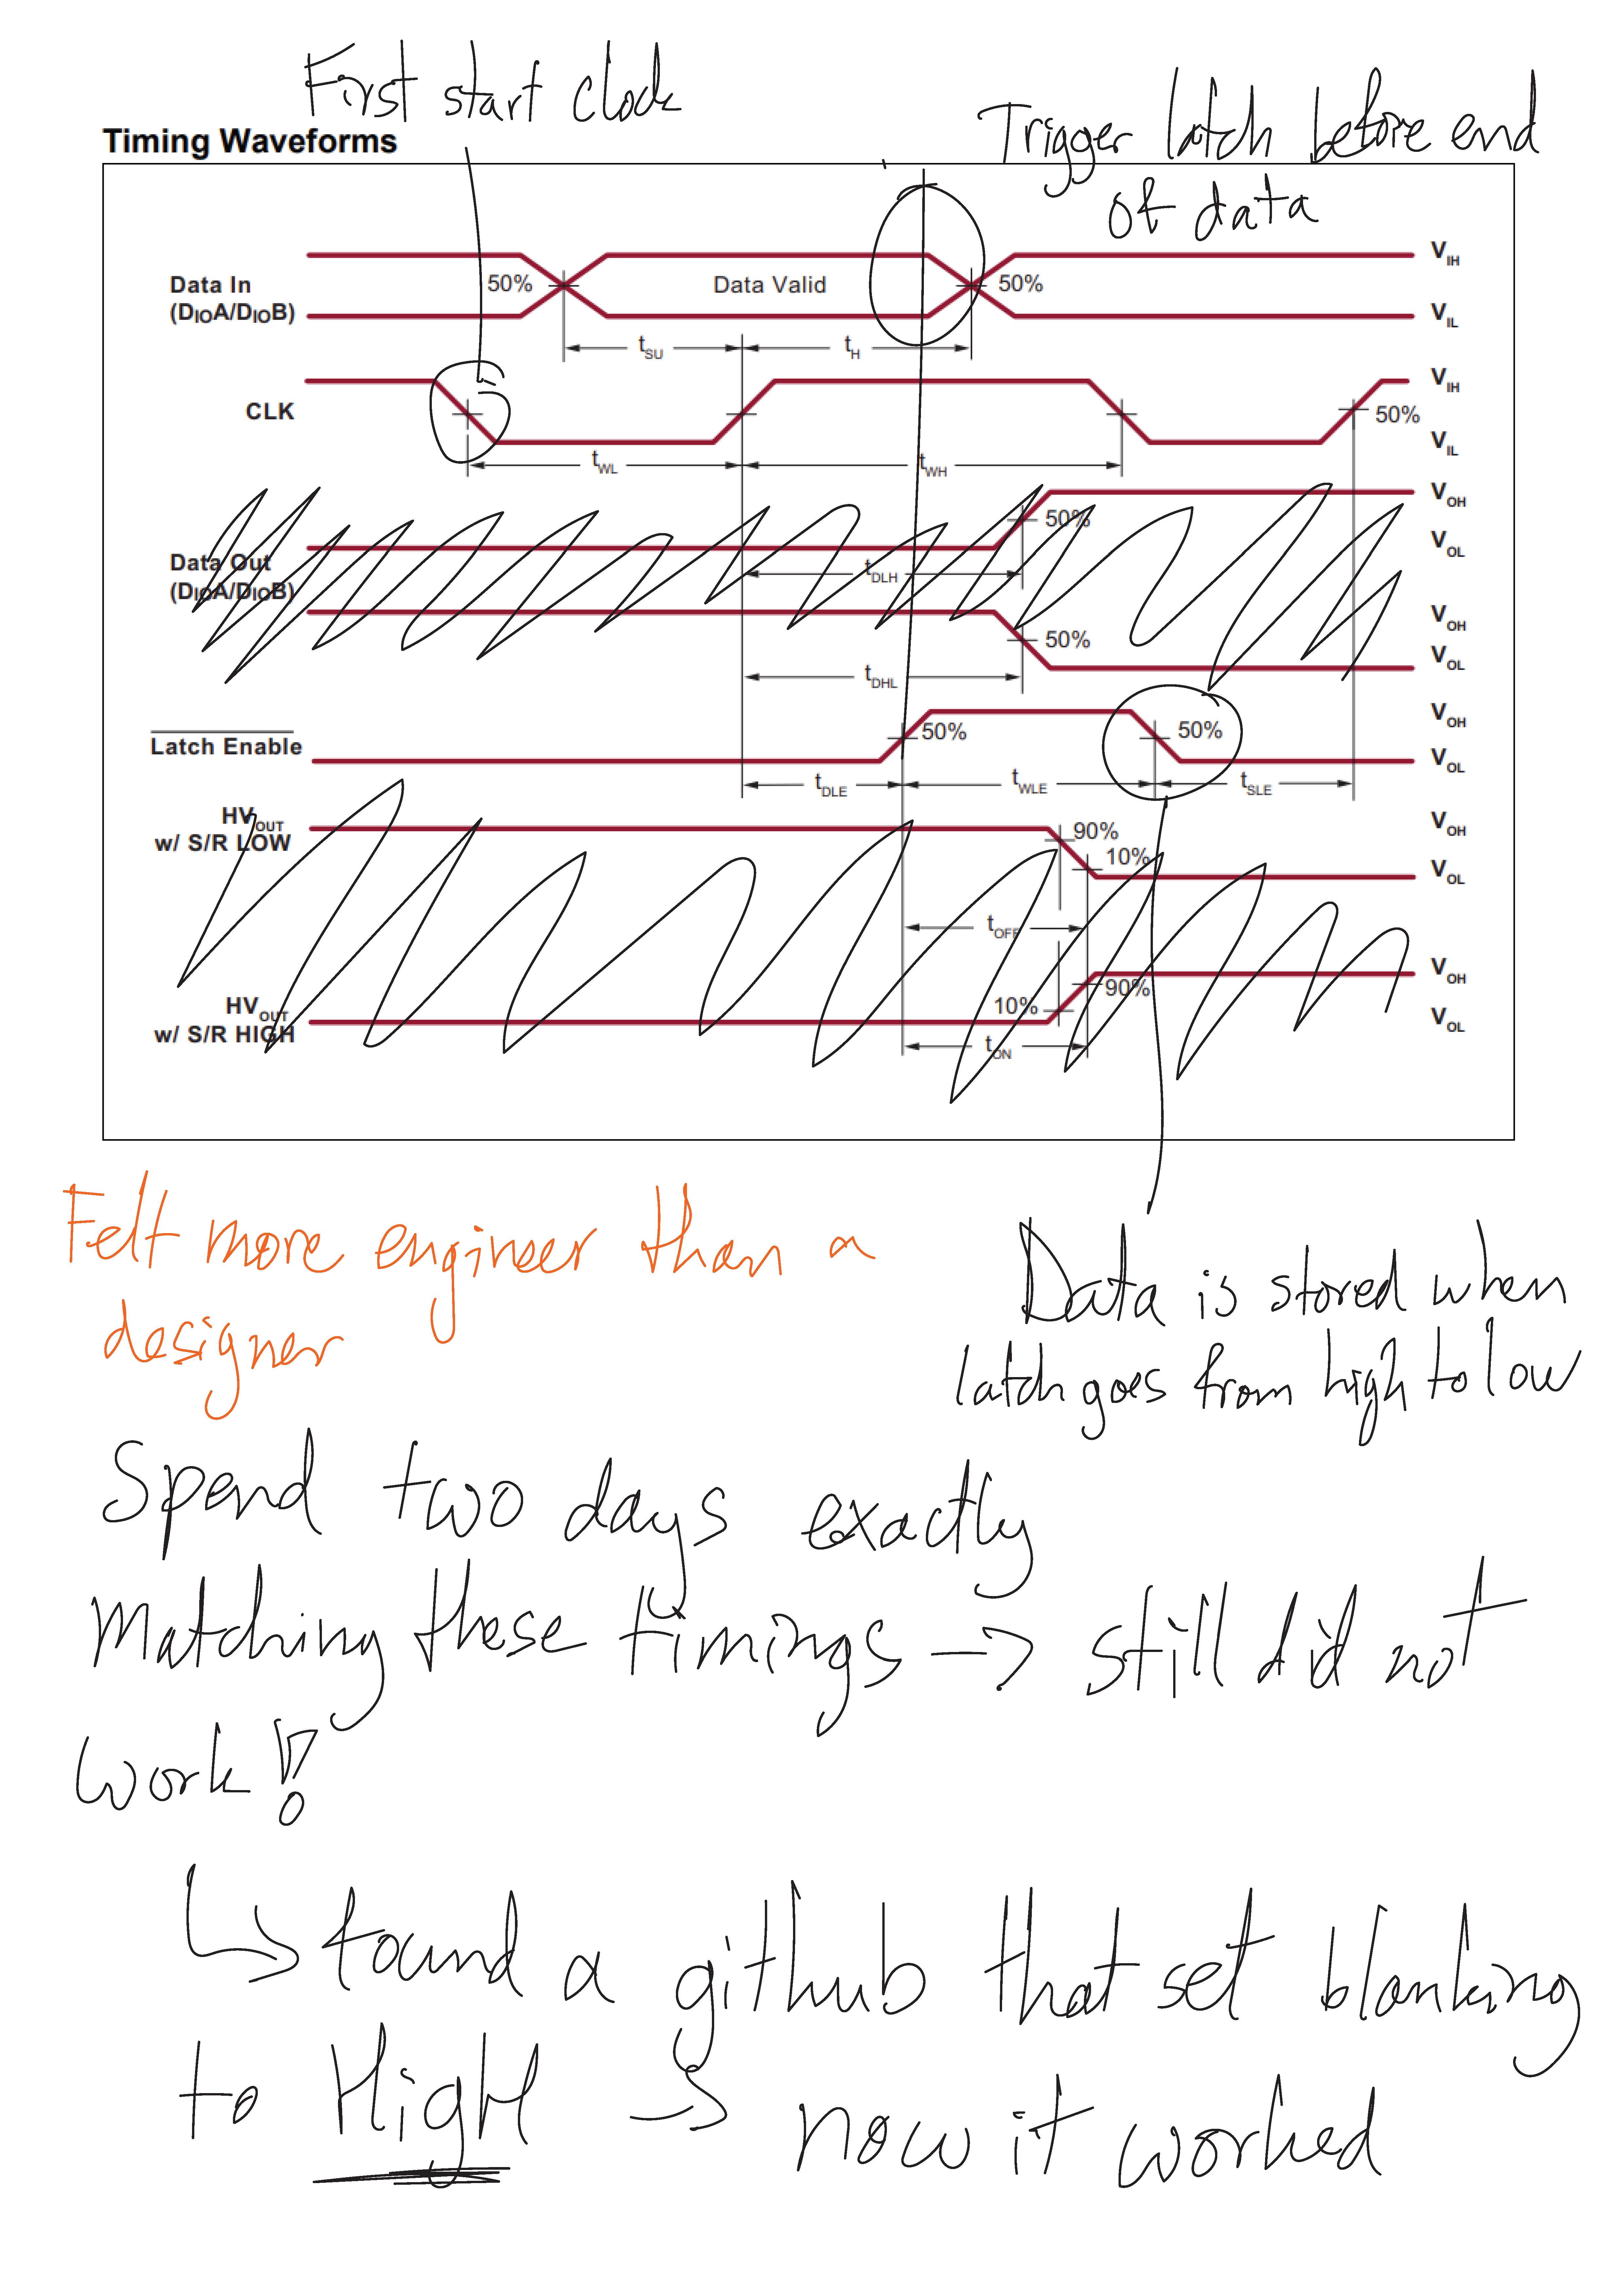 First start clock
Trigger latch before end
of data
Timing Waveforms
Data In
(DIOA/DIOB)
50%
Data Valid
50%
VIH
VIL
tSU
tH
CLK
VIH
50%
VIL
tWL
tWH
Data Out
(DIOA/DIOB)
50%
VOH
VOL
tDLH
50%
VOH
VOL
tDHL
Latch Enable
50%
50%
VOH
VOL
tDLE
tWLE
tSLE
HVOUT
w/ S/R LOW
90%
10%
VOH
VOL
tOFF
HVOUT
w/ S/R HIGH
10%
90%
VOH
VOL
tON
Felt more engineer than a
designer
Data is stored when
latch goes from high to low
Spend two days exactly
Matching these timings → still did not
work!
↳ found a github that set blanking
to HigH → now it worked